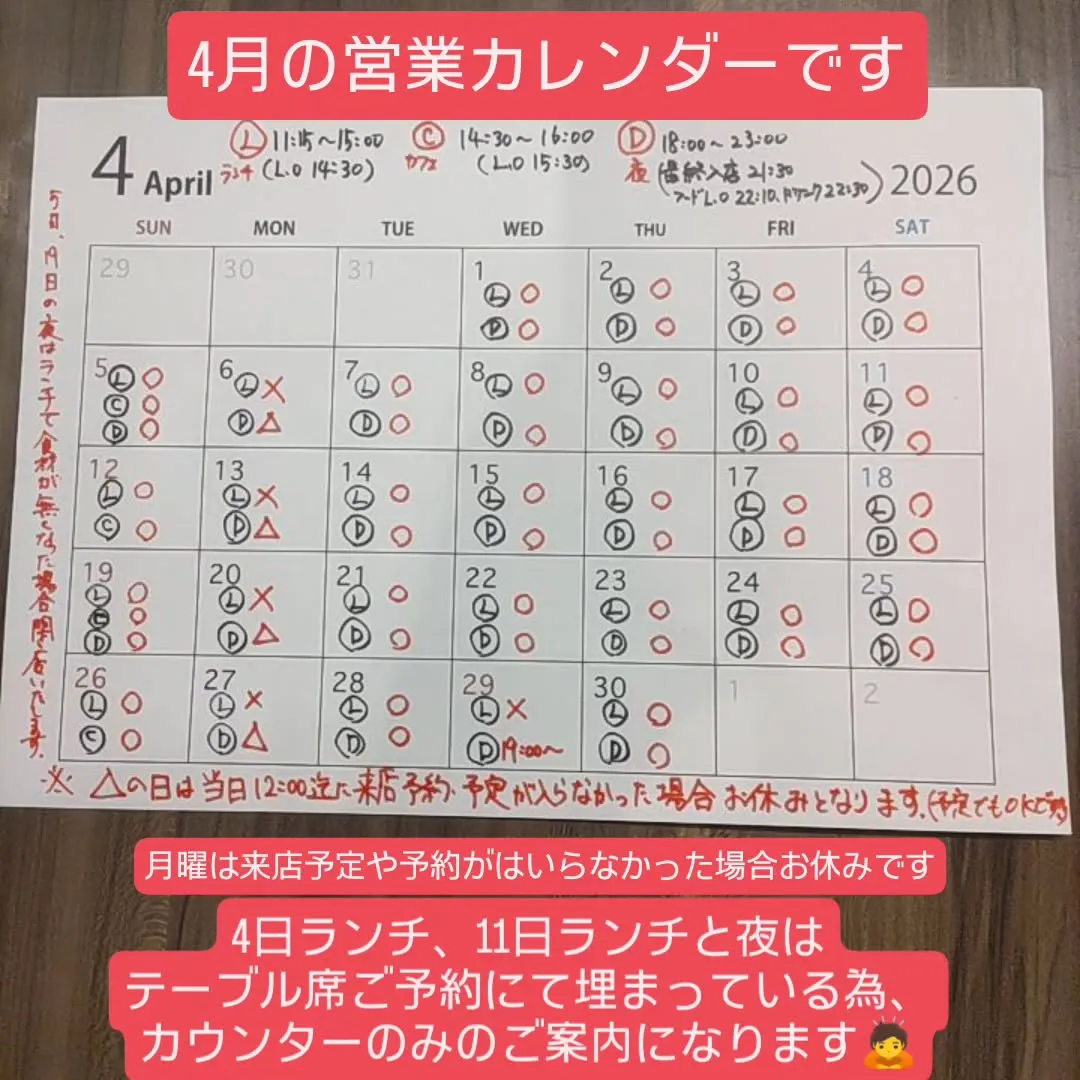 4月の営業カレンダーです
4 April
Ⓛ 11:15～15:00 Ⓒ 14:30～16:00 Ⓓ 18:00～23:00
ランチ (L.O 14:30) カフェ (L.O 15:30) 夜 (最終入店 21:30
フードL.O 22:10、ドリンク22:30)
2026
SUN MON TUE WED THU FRI SAT
29 30 31 1 2 3 4
Ⓛ ○ Ⓛ ○ Ⓛ ○ Ⓛ ○
Ⓓ ○ Ⓓ ○ Ⓓ ○ Ⓓ ○
5 6 7 8 9 10 11
Ⓛ ○ Ⓛ × Ⓛ ○ Ⓛ ○ Ⓛ ○ Ⓛ ○ Ⓛ ○
Ⓒ ○
Ⓓ ○ Ⓓ △ Ⓓ ○ Ⓓ ○ Ⓓ ○ Ⓓ ○ Ⓓ ○
12 13 14 15 16 17 18
Ⓛ ○ Ⓛ × Ⓛ ○ Ⓛ ○ Ⓛ ○ Ⓛ ○ Ⓛ ○
Ⓒ ○ Ⓓ △ Ⓓ ○ Ⓓ ○ Ⓓ ○ Ⓓ ○ Ⓓ ○
19 20 21 22 23 24 25
Ⓛ ○ Ⓛ × Ⓛ ○ Ⓛ ○ Ⓛ ○ Ⓛ ○ Ⓛ ○
Ⓒ ○
Ⓓ ○ Ⓓ △ Ⓓ ○ Ⓓ ○ Ⓓ ○ Ⓓ ○ Ⓓ ○
26 27 28 29 30 1 2
Ⓛ ○ Ⓛ × Ⓛ ○ Ⓛ × Ⓛ ○
Ⓒ ○ Ⓓ △ Ⓓ ○ Ⓓ 19:00～ Ⓓ ○
5日、19日の夜はランチで食材が無くなった場合閉店いたします.
※ △の日は当日12:00迄に来店予約、予定が入らなかった場合お休みとなります.(予定でもOKです)
月曜は来店予定や予約がはいらなかった場合お休みです
4日ランチ、11日ランチと夜は
テーブル席ご予約にて埋まっている為、
カウンターのみのご案内になります🙇